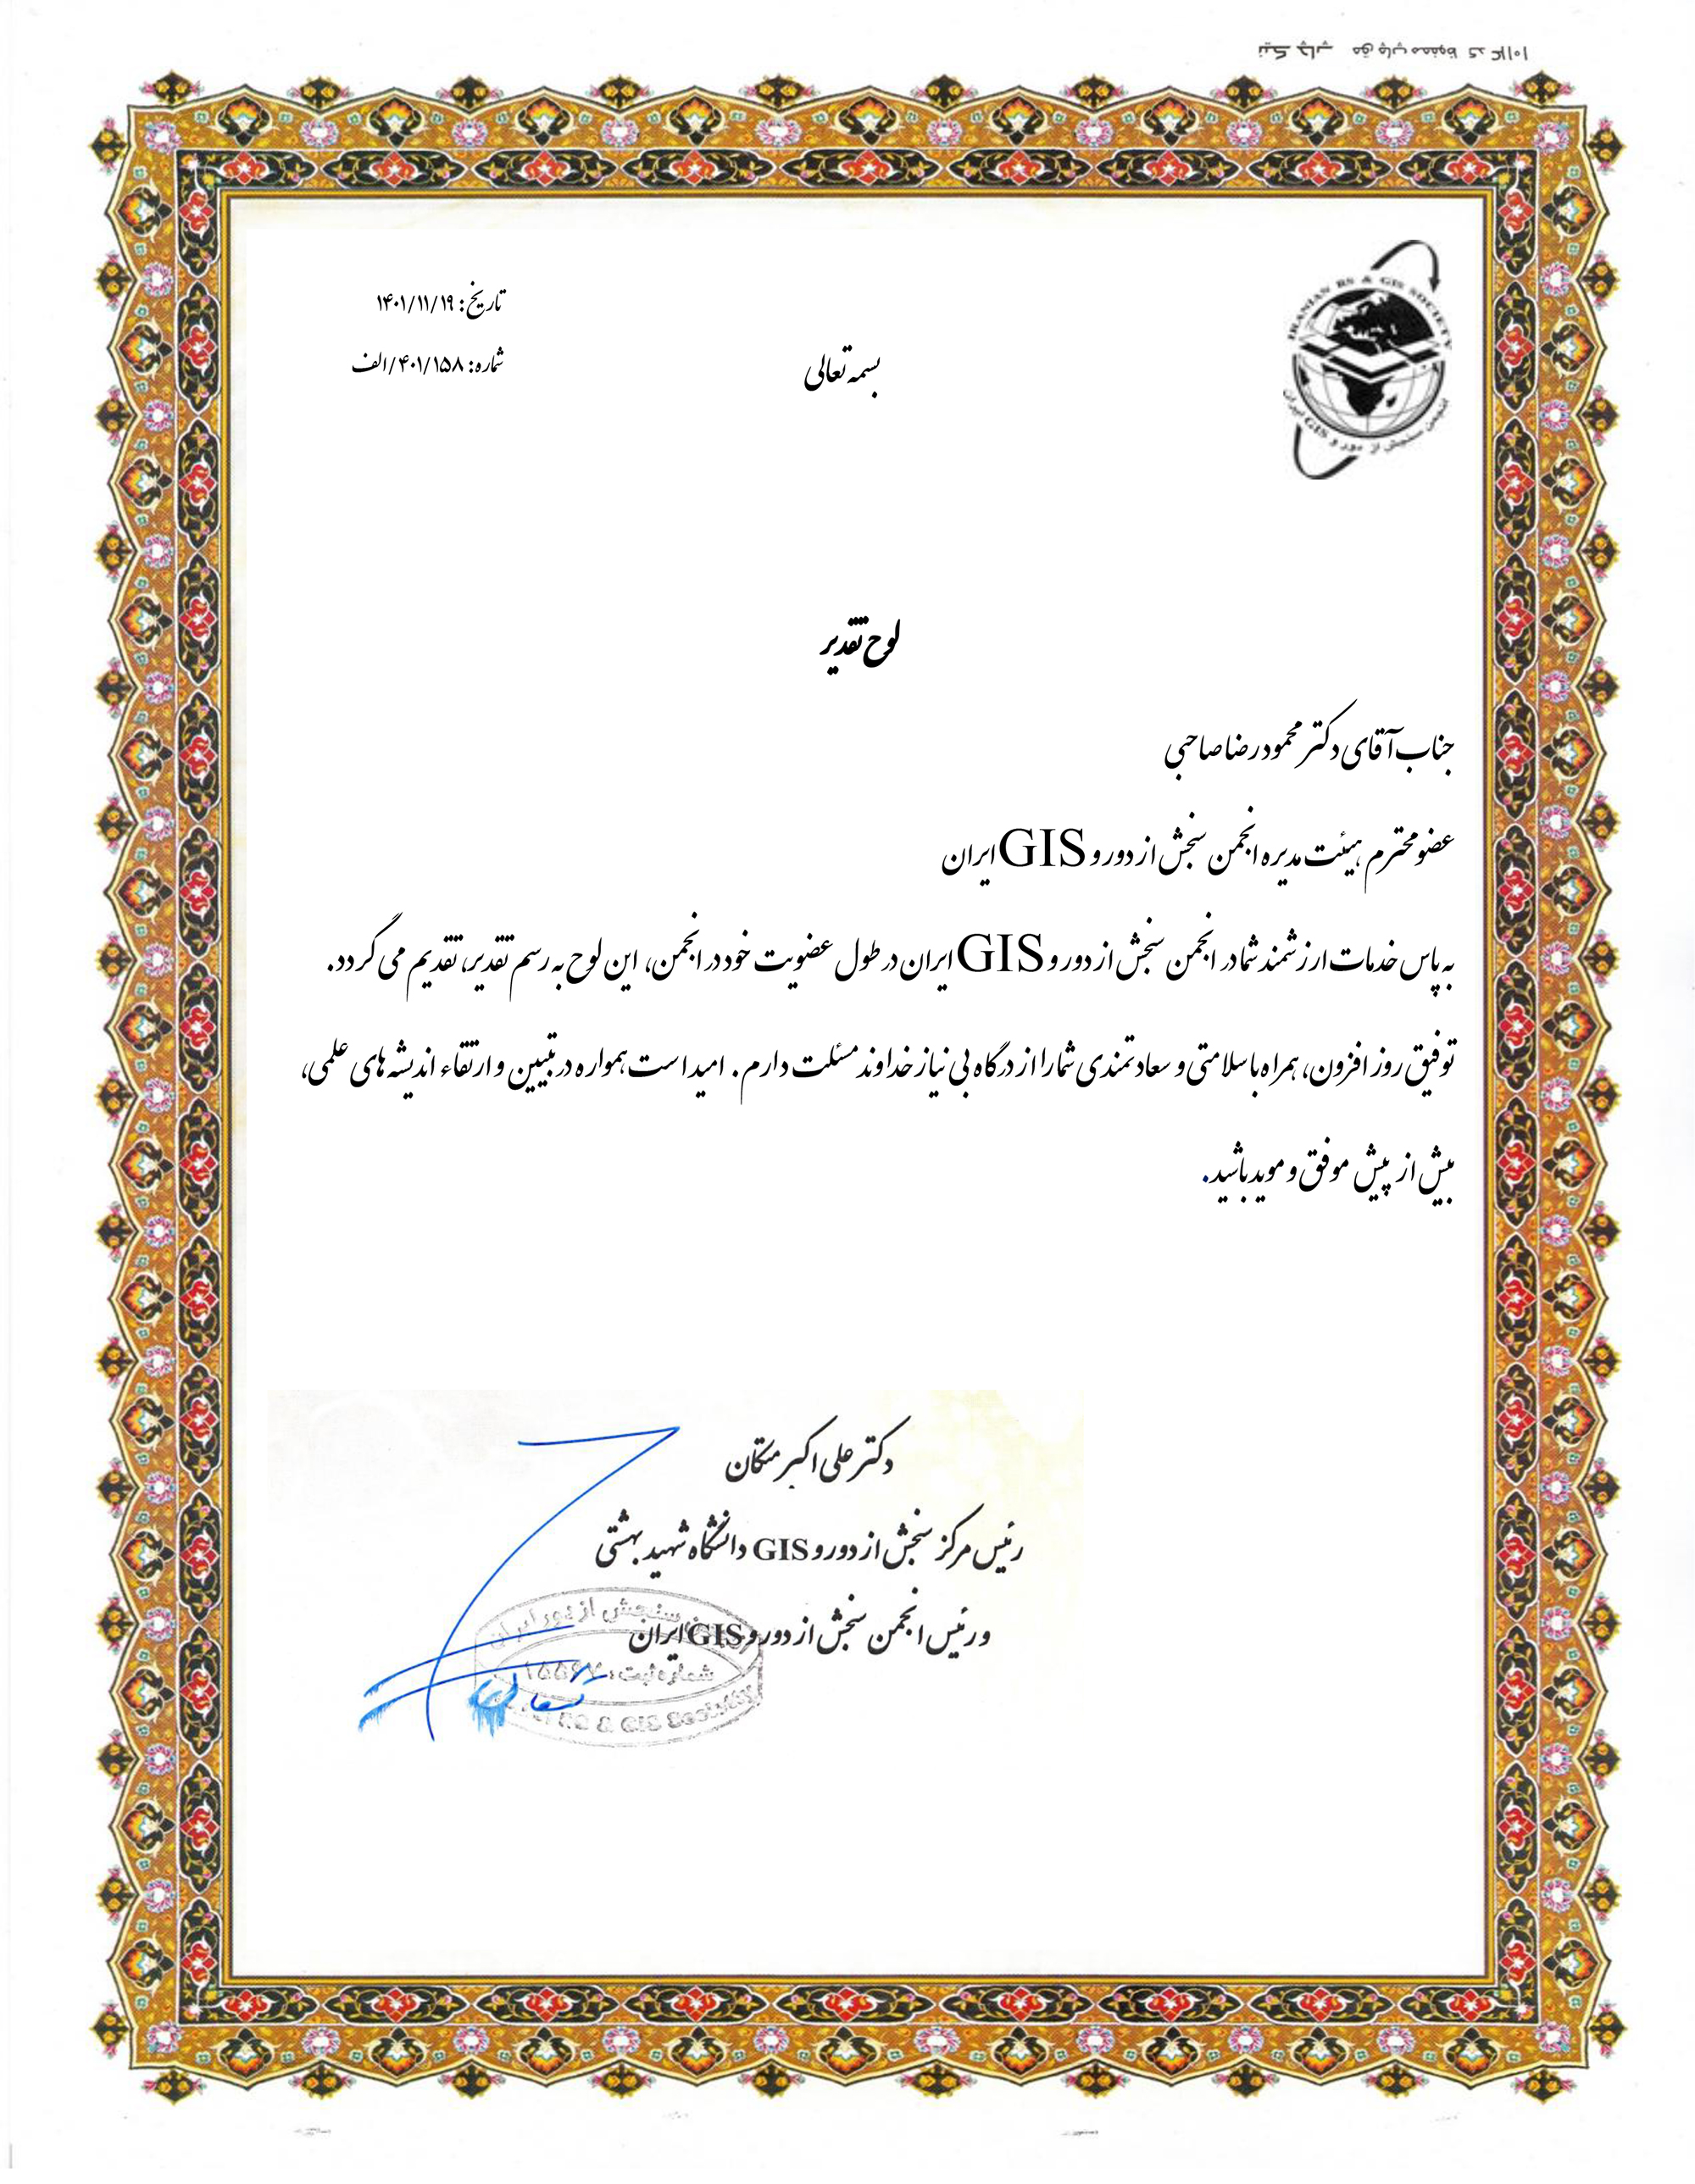 تاریخ: ۱۴۰۱/۱۱/۱۹
شماره: ۴۰۱/۱۵۸/الف
IRANIAN RS & GIS SOCIETY
انجمن سنجش از دور و GIS ایران
بسمه تعالی
لوح تقدیر
جناب آقای دکتر محمودرضا صاحبی
عضو محترم هیئت مدیره انجمن سنجش از دور و GIS ایران
به پاس خدمات ارزشمند شما در انجمن سنجش از دور و GIS ایران در طول عضویت خود در انجمن، این لوح به رسم تقدیر، تقدیم می گردد.
توفیق روز افزون، همراه با سلامتی و سعادتمندی شما را از درگاه بی نیاز خداوند مسئلت دارم. امید است همواره در تبیین و ارتقاء اندیشه های علمی،
بیش از پیش موفق و موید باشید.
دکتر علی اکبر متکان
رئیس مرکز سنجش از دور و GIS دانشگاه شهید بهشتی
و رئیس انجمن سنجش از دور و GIS ایران
سنجش از دور ایران
شماره ثبت:
RS & GIS Society